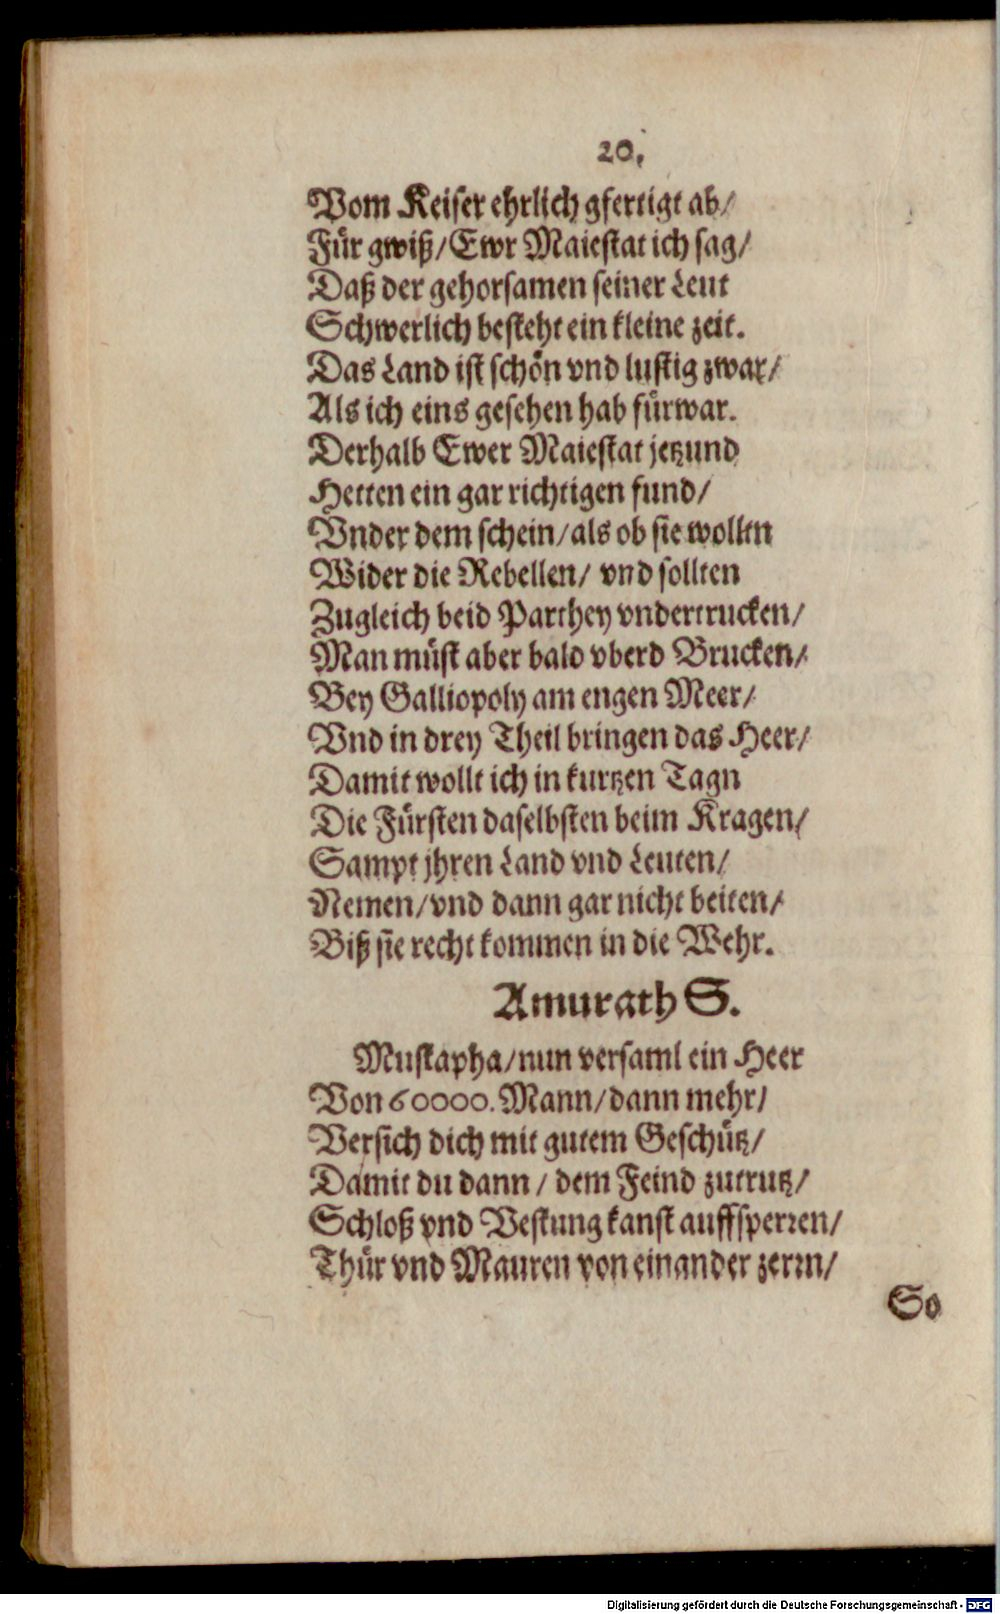 20.
Vom Keiser ehrlich gfertigt ab/
Für gwiß/ Ewr Maiestat ich sag/
Daß der gehorsamen seiner Leut
Schwerlich besteht ein kleine zeit.
Das Land ist schön vnd lustig zwar/
Als ich eins gesehen hab fürwar.
Derhalb Ewer Maiestat jetzund
Hetten ein gar richtigen fund/
Vnder dem schein/ als ob sie wolltn
Wider die Rebellen/ vnd sollten
Zugleich beid Parthey vndertrucken/
Man müst aber bald vberd Brucken/
Bey Galliopoly am engen Meer/
Vnd in drey Theil bringen das Heer/
Damit wollt ich in kurtzen Tagn
Die Fürsten daselbsten beim Kragen/
Sampt jhren Land vnd Leuten/
Nemen/ vnd dann gar nicht beiten/
Biß sie recht kommen in die Wehr.
Amurath S.
Mustapha/ nun versaml ein Heer
Von 60000. Mann/ dann mehr/
Versich dich mit gutem Geschütz/
Damit du dann/ dem Feind zutrutz/
Schloß vnd Vestung kanst auffsperren/
Thür vnd Mauren von einander zerrn/
So
Digitalisierung gefördert durch die Deutsche Forschungsgemeinschaft - DFG